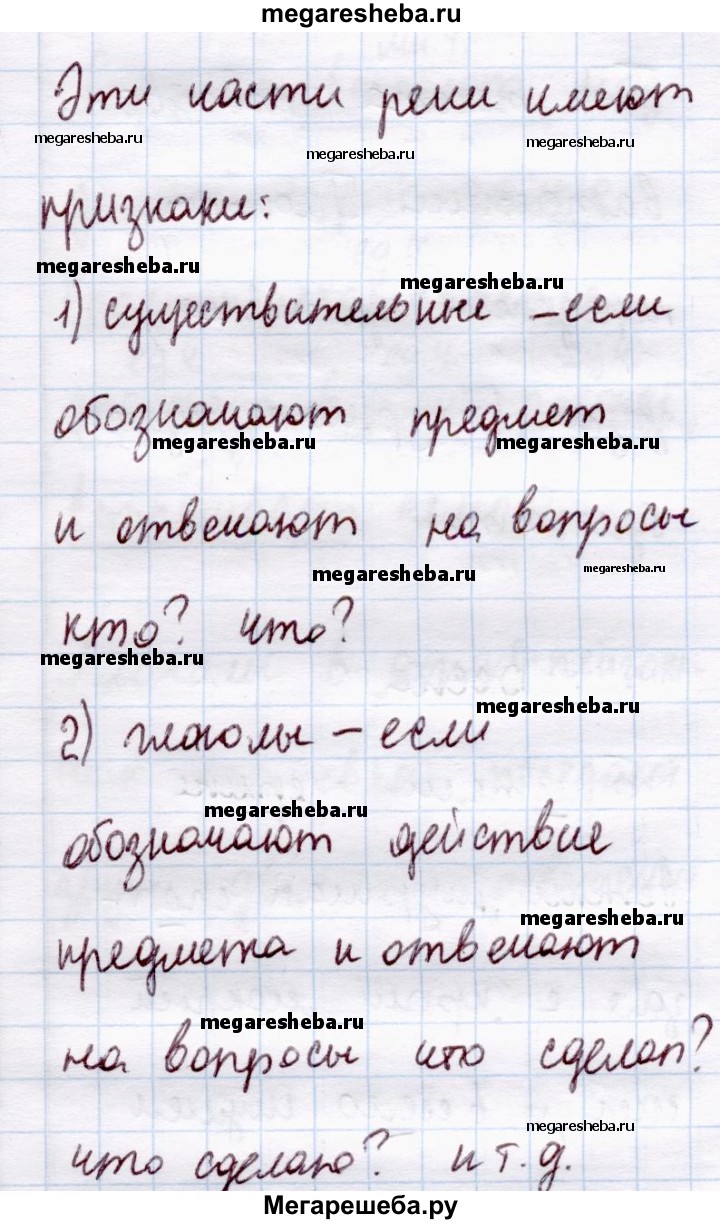 megaresheba.ru
Эти части речи имеют
megaresheba.ru megaresheba.ru megaresheba.ru
признаки:
megaresheba.ru megaresheba.ru
1) существительные – если
обозначают предмет
megaresheba.ru megaresheba.ru
и отвечают на вопросы
megaresheba.ru megaresheba.ru
кто? что?
megaresheba.ru
megaresheba.ru
2) глаголы – если
megaresheba.ru
обозначают действие
megaresheba.ru
предмета и отвечают
megaresheba.ru
на вопросы что сделал?
megaresheba.ru
что сделаю? и т. д.
Мегарешеба.ру